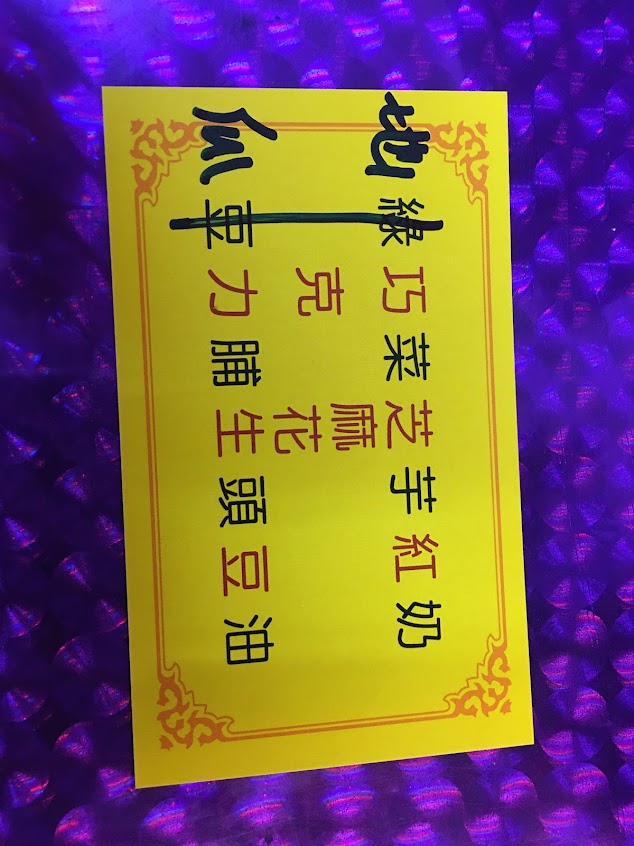 奶油
紅豆
芋頭
芝麻花生
菜脯
巧克力
綠豆
地瓜